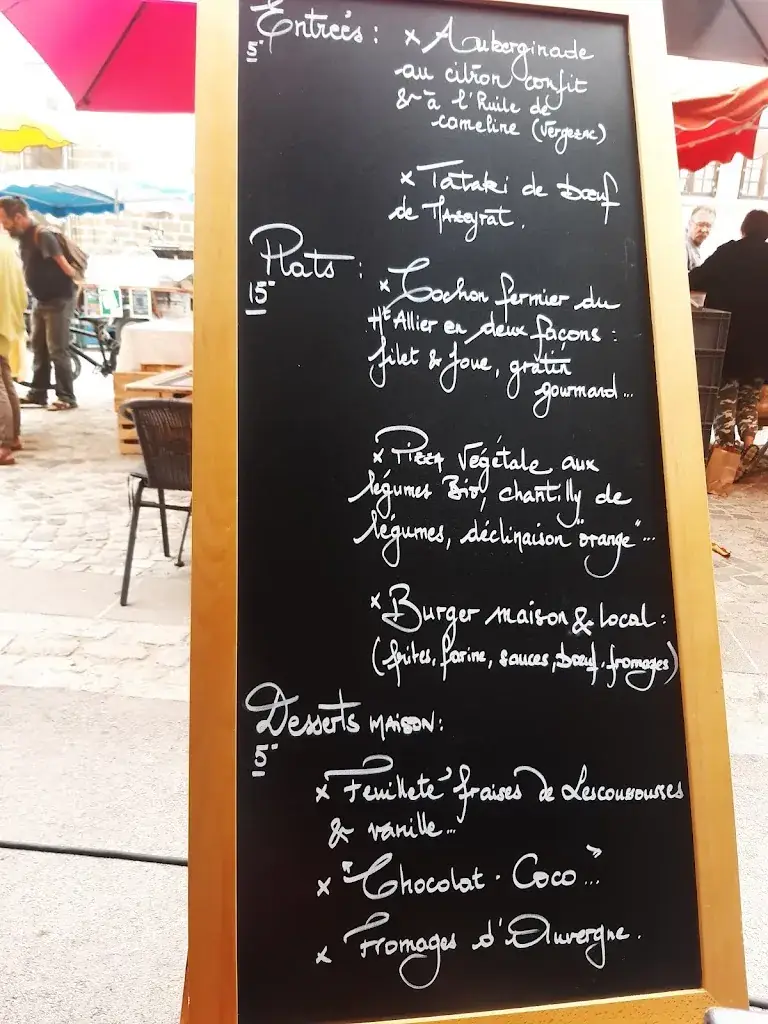 Entrées : x Auberginade
5"
au citron confit
& à l'huile de
cameline (Vergezac)
x Tataki de bœuf
de Mazeyrat.
Plats :
15"
x Cochon fermier du
Ht Allier en deux façons :
filet & joue, gratin
gourmand...
x Pizza Végétale aux
légumes Bio, chantilly de
légumes, déclinaison "orange"...
x Burger maison & local :
(frites, farine, sauces, bœuf, fromages)
Desserts MAISON :
5"
x Feuilleté fraises de Lescoussousses
& vanille...
x "Chocolat . Coco"...
x Fromages d'Auvergne.